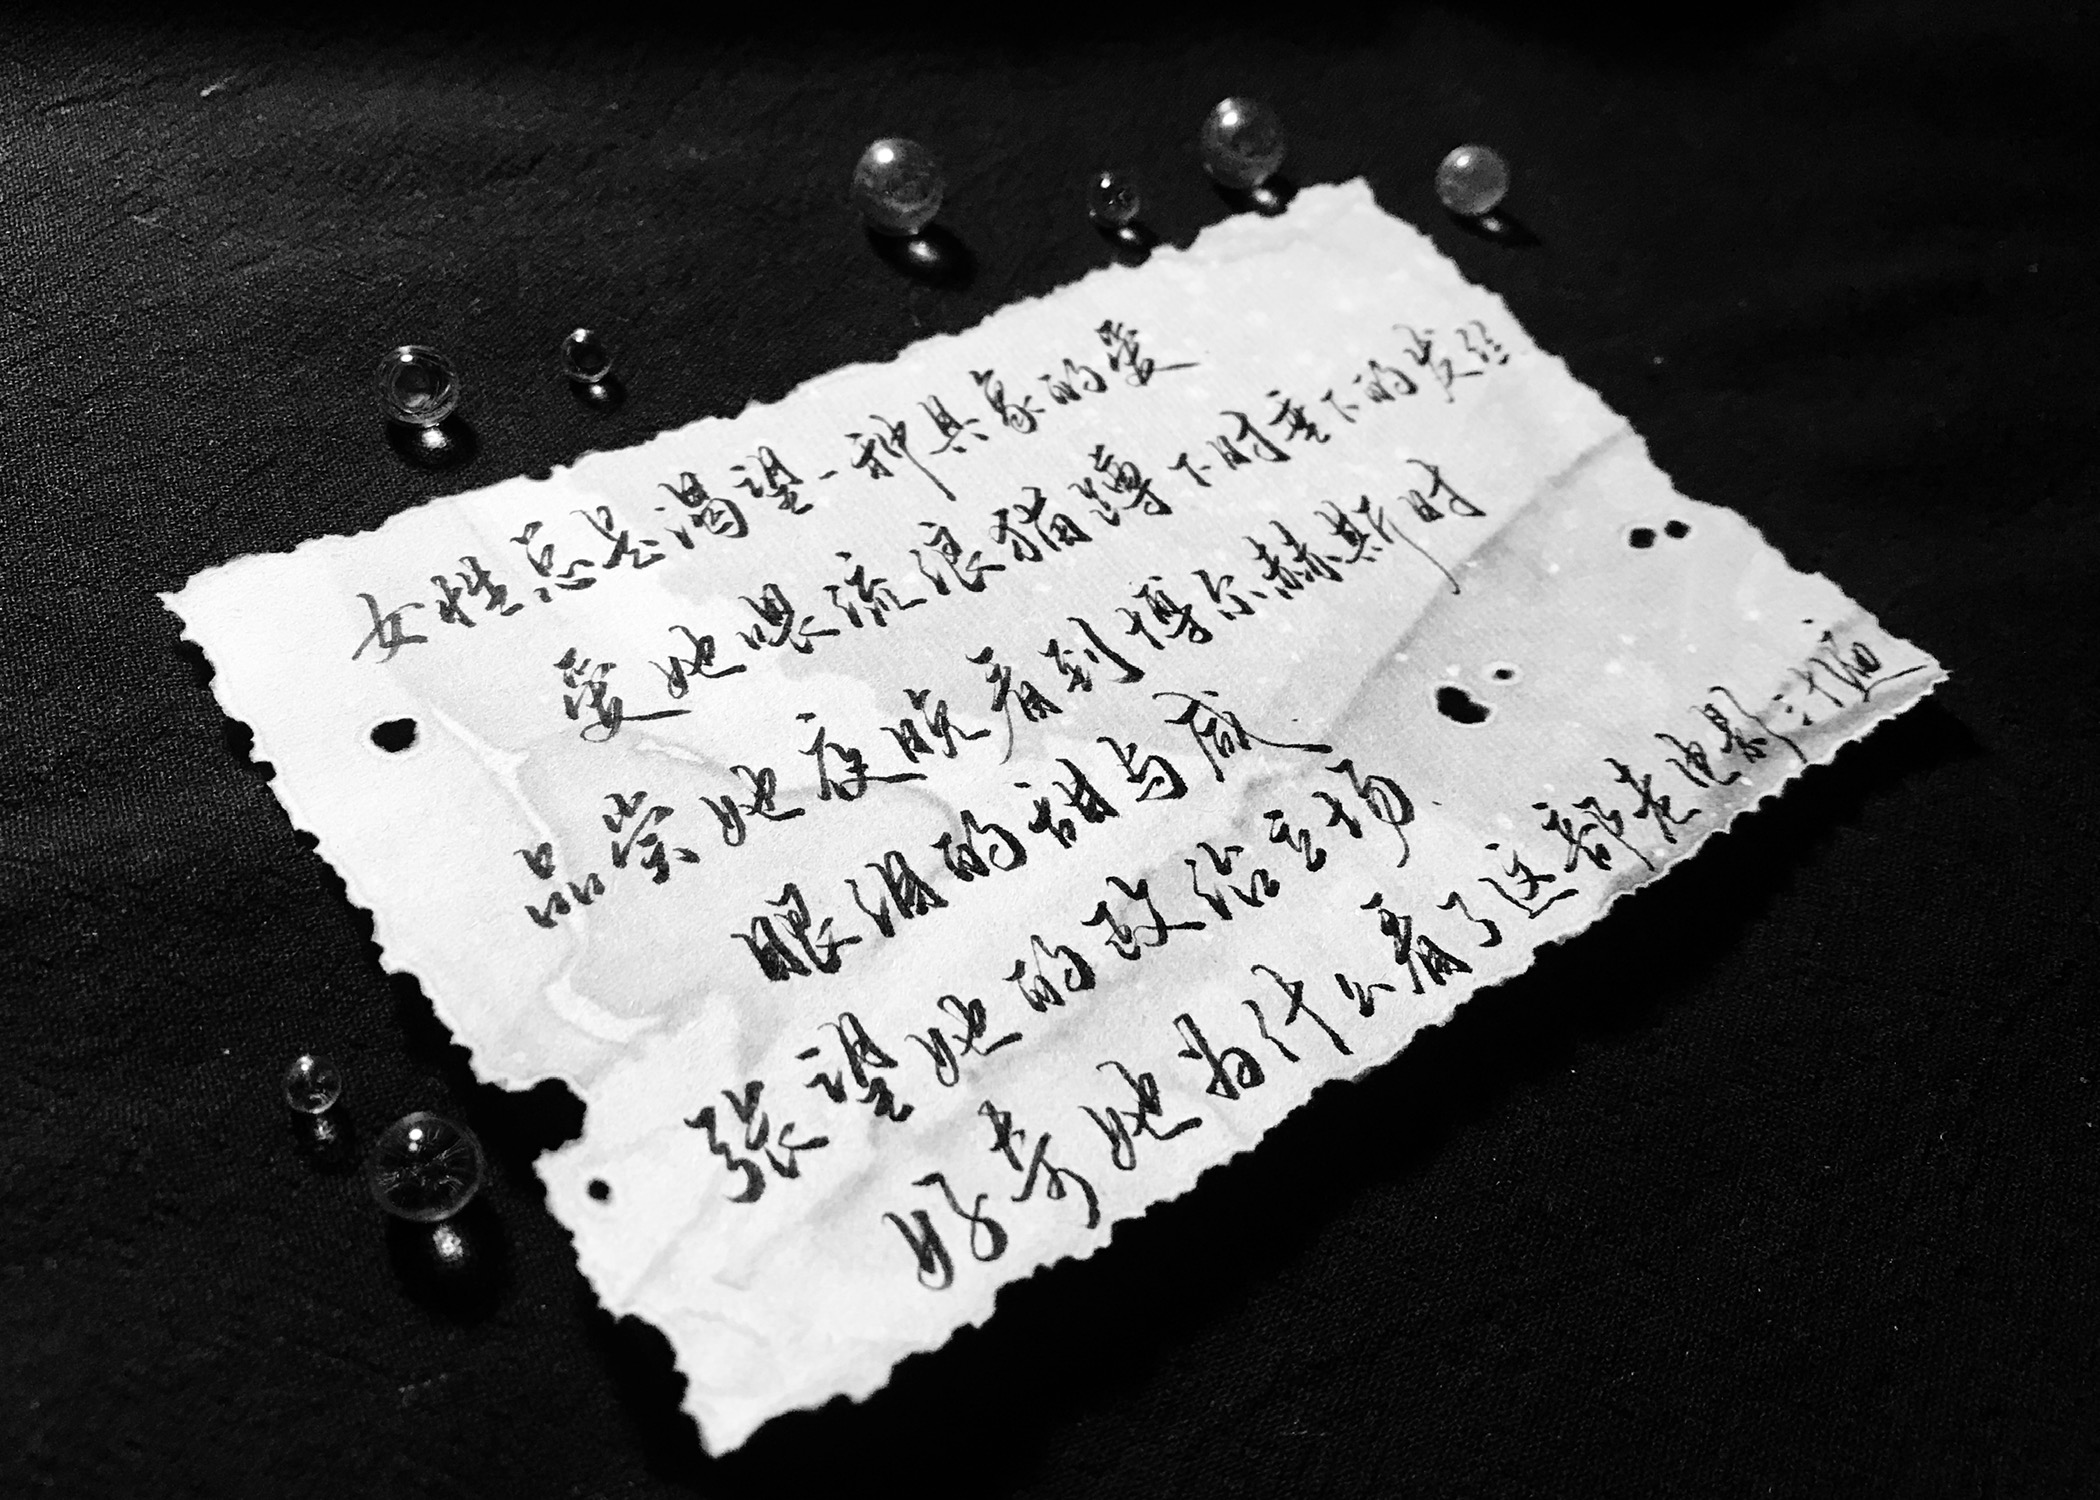 女性总是渴望一种具象的爱
爱她喂流浪猫蹲下时垂下的发丝
品尝她夜晚看到博尔赫斯时
眼泪的甜与咸
张望她的政治立场
好奇她为什么看了这部老电影